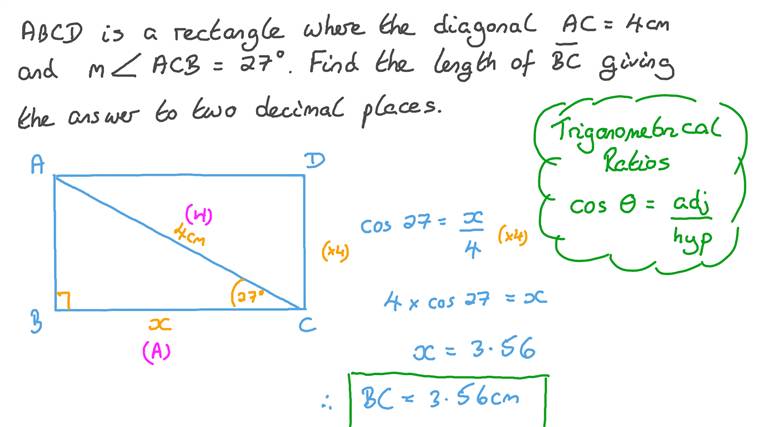 ABCD is a rectangle where the diagonal AC = 4cm
and m∠ACB = 27°. Find the length of B̅C̅ giving
the answer to two decimal places.
Trigonometrical
Ratios
cos θ = adj/hyp
A
D
(H)
4cm
27°
B
x
C
(A)
(×4) cos 27 = x/4 (×4)
4 × cos 27 = x
x = 3.56
∴ BC = 3.56cm